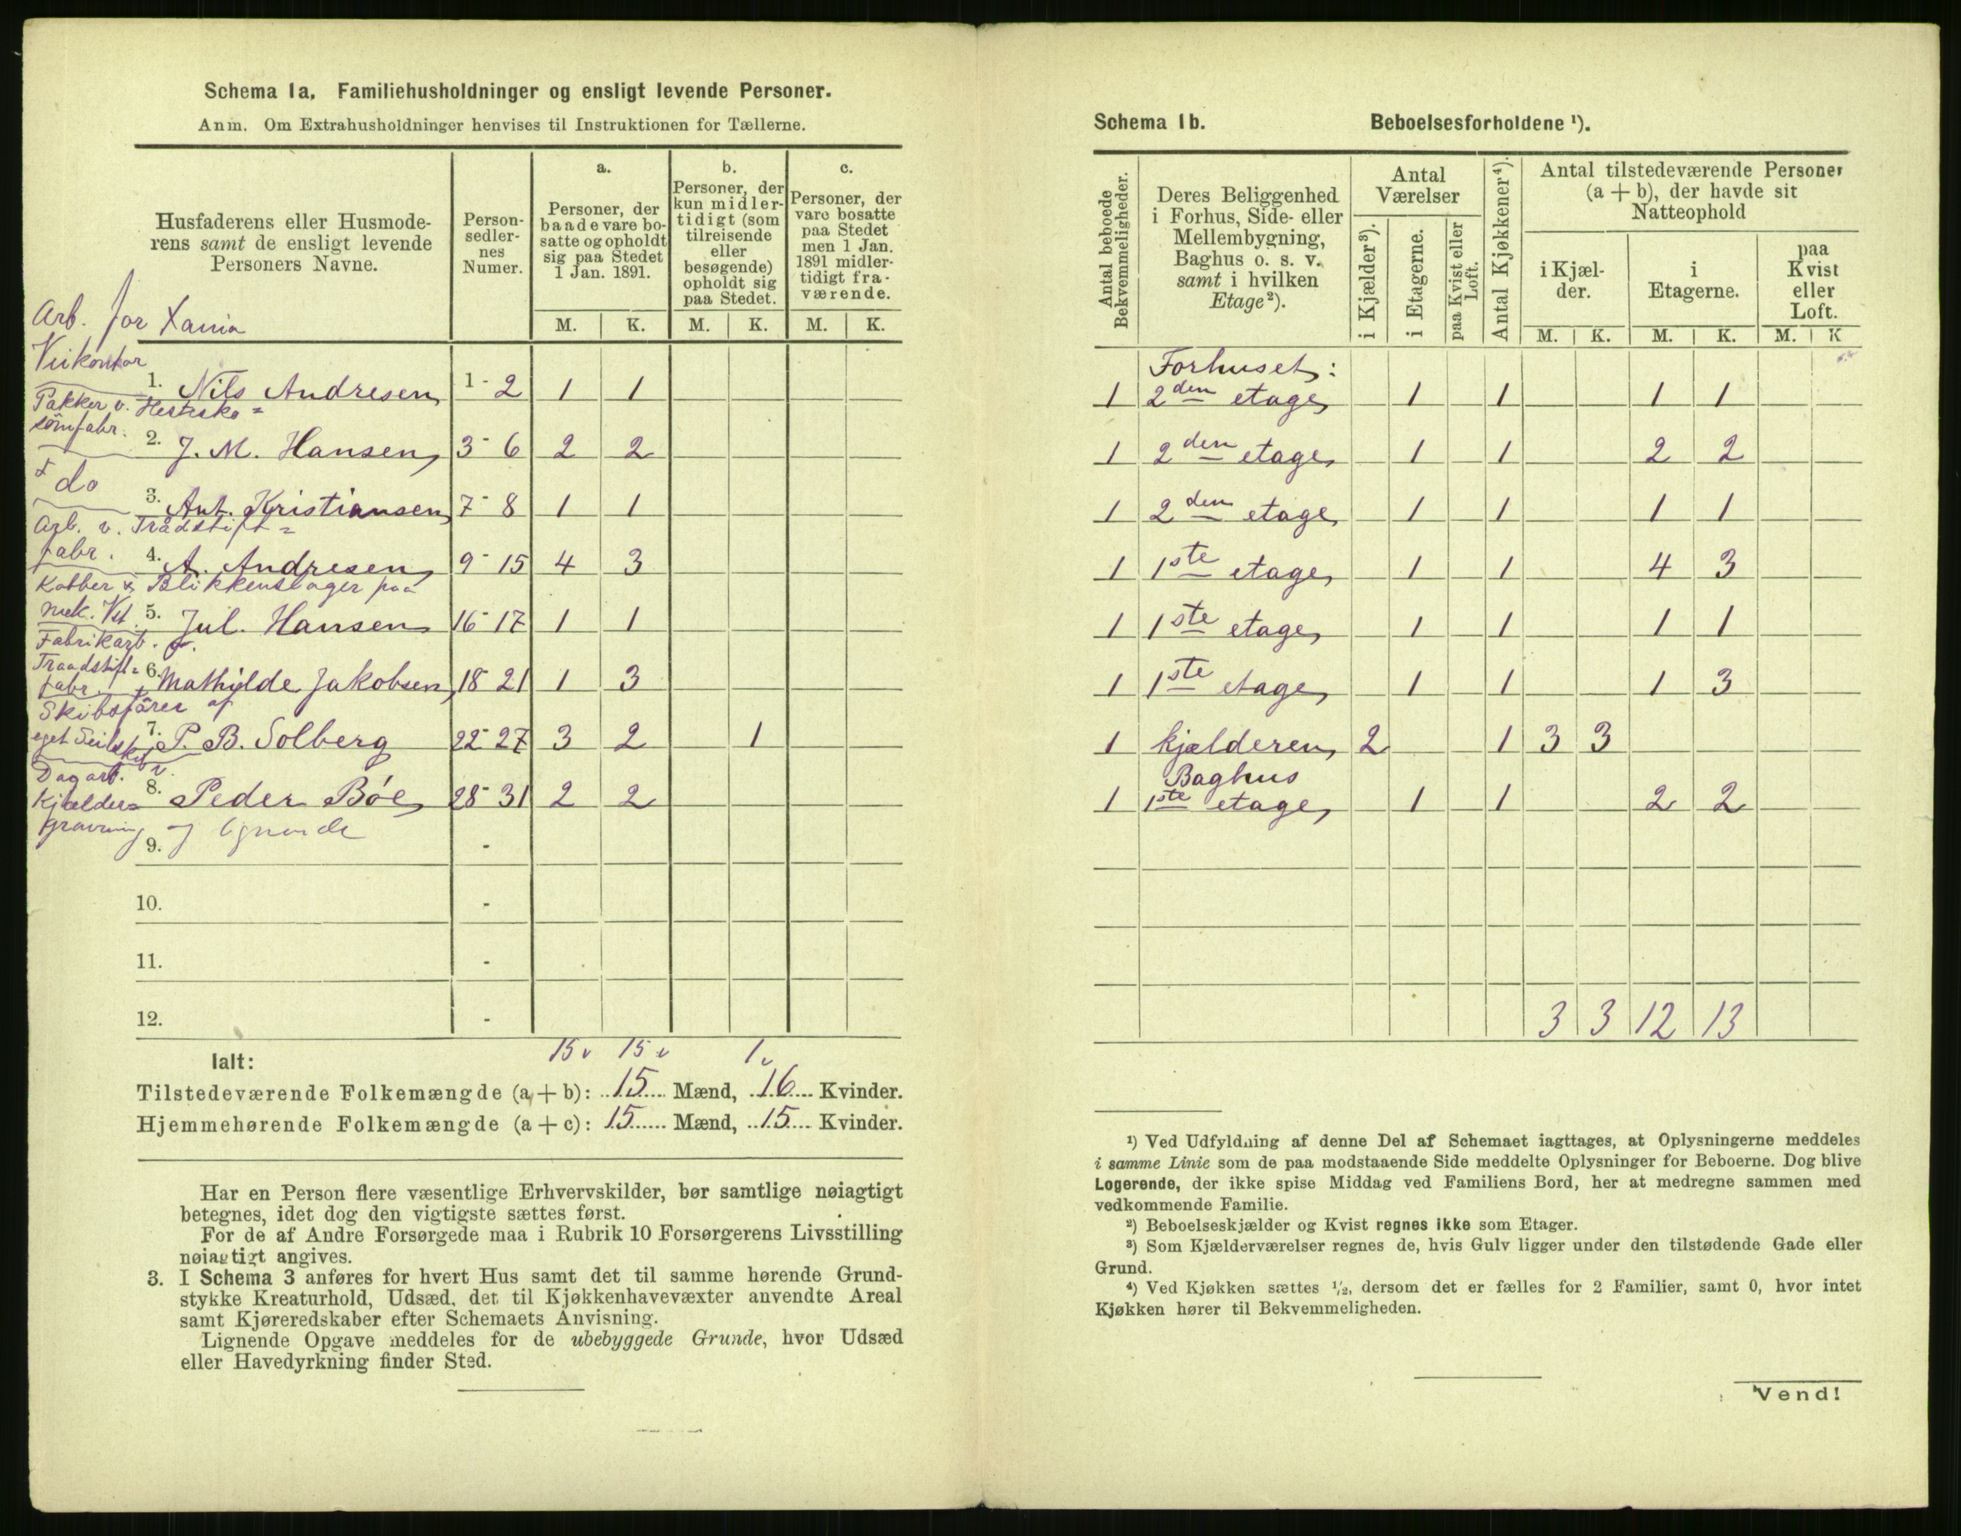 Schema 1a. Familiehusholdninger og ensligt levende Personer.
Anm. Om Extrahusholdninger henvises til Instruktionen for Tællerne.
Husfaderens eller Husmoderens samt de ensligt levende Personers Navne.
Personsedlernes Numer.
a. Personer, der baade vare bosatte og opholdt sig paa Stedet 1 Jan. 1891.
b. Personer, der kun midlertidigt (som tilreisende eller besøgende) opholdt sig paa Stedet.
c. Personer, der vare bosatte paa Stedet men 1 Jan. 1891 midlertidigt fraværende.
M. K. M. K. M. K.
Arb. for Xania
Veikontor
1. Nils Andresen 1 - 2 1 1
Pakker v. Hestesko=
sömfabr.
2. J. M. Hansen 3 - 6 2 2
do
3. Ant. Kristiansen 7 - 8 1 1
Arb. v. Trådstift=
fabr.
4. A. Andresen 9 - 15 4 3
Kobber & Blikkenslager paa
mek. Vst.
5. Jul. Hansen 16 - 17 1 1
Fabrikarb.
Traadstift=
fabr.
6. Mathilde Jakobsen 18 - 21 1 3
Skibsfører af
eget Seilskib
7. P. B. Solberg 22 - 27 3 2 1
Dagarb. v.
Kjælder=
8. Peder Böe 28 - 31 2 2
gravning og lignende
9. -
10. -
11. -
12. -
Ialt: 15 15 1
Tilstedeværende Folkemængde (a + b): 15 Mænd, 16 Kvinder.
Hjemmehørende Folkemængde (a + c): 15 Mænd, 15 Kvinder.
Har en Person flere væsentlige Erhvervskilder, bør samtlige nøiagtigt
betegnes, idet dog den vigtigste sættes først.
For de af Andre Forsørgede maa i Rubrik 10 Forsørgerens Livsstilling
nøiagtigt angives.
3. I Schema 3 anføres for hvert Hus samt det til samme hørende Grund-
stykke Kreaturhold, Udsæd, det til Kjøkkenhavevæxter anvendte Areal
samt Kjøreredskaber efter Schemaets Anvisning.
Lignende Opgave meddeles for de ubebyggede Grunde, hvor Udsæd
eller Havedyrkning finder Sted.
Schema 1b. Beboelsesforholdene ¹).
Antal beboede Bekvemmeligheder.
Deres Beliggenhed i Forhus, Side- eller Mellembygning, Baghus o. s. v. samt i hvilken Etage²).
Antal Værelser
i Kjælder³).
i Etagerne.
paa Kvist eller Loft.
Antal Kjøkkener⁴).
Antal tilstedeværende Personer (a + b), der havde sit Natteophold
i Kjælder.
i Etagerne.
paa Kvist eller Loft.
M. K. M. K. M. K
Forhuset:
1 2den etage 1 1 1 1
1 2den etage 1 1 2 2
1 2den etage 1 1 1 1
1 1ste etage 1 1 4 3
1 1ste etage 1 1 1 1
1 1ste etage 1 1 1 3
1 kjælderen 2 1 3 3
Baghus
1 1ste etage 1 1 2 2
3 3 12 13
¹) Ved Udfyldning af denne Del af Schemaet iagttages, at Oplysningerne meddeles
i samme Linie som de paa modstaaende Side meddelte Oplysninger for Beboerne. Dog blive
Logerende, der ikke spise Middag ved Familiens Bord, her at medregne sammen med
vedkommende Familie.
²) Beboelseskjælder og Kvist regnes ikke som Etager.
³) Som Kjælderværelser regnes de, hvis Gulv ligger under den tilstødende Gade eller
Grund.
⁴) Ved Kjøkken sættes ½, dersom det er fælles for 2 Familier, samt 0, hvor intet
Kjøkken hører til Bekvemmeligheden.
Vend!